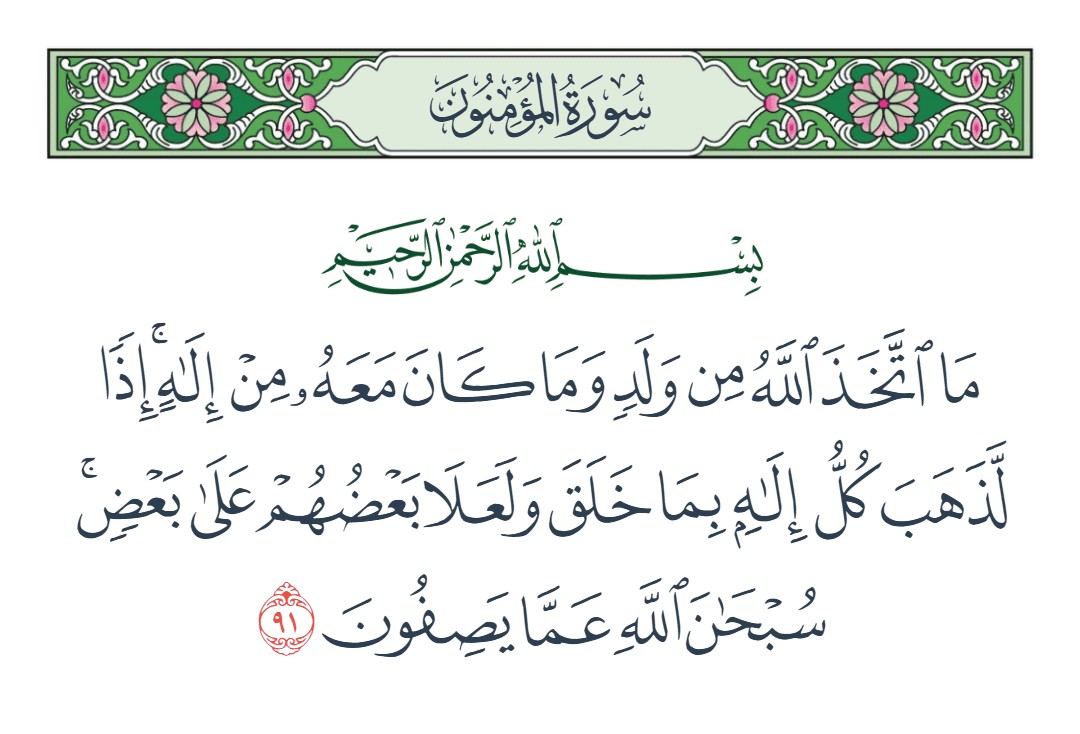 سُورَةُ المُؤْمِنُونَ
بِسْمِ ٱللَّهِ ٱلرَّحْمَٰنِ ٱلرَّحِيمِ
مَا ٱتَّخَذَ ٱللَّهُ مِن وَلَدٍ وَمَا كَانَ مَعَهُۥ مِنْ إِلَـٰهٍۚ إِذًا
لَّذَهَبَ كُلُّ إِلَـٰهٍۭ بِمَا خَلَقَ وَلَعَلَا بَعْضُهُمْ عَلَىٰ بَعْضٍۚ
سُبْحَـٰنَ ٱللَّهِ عَمَّا يَصِفُونَ ٩١